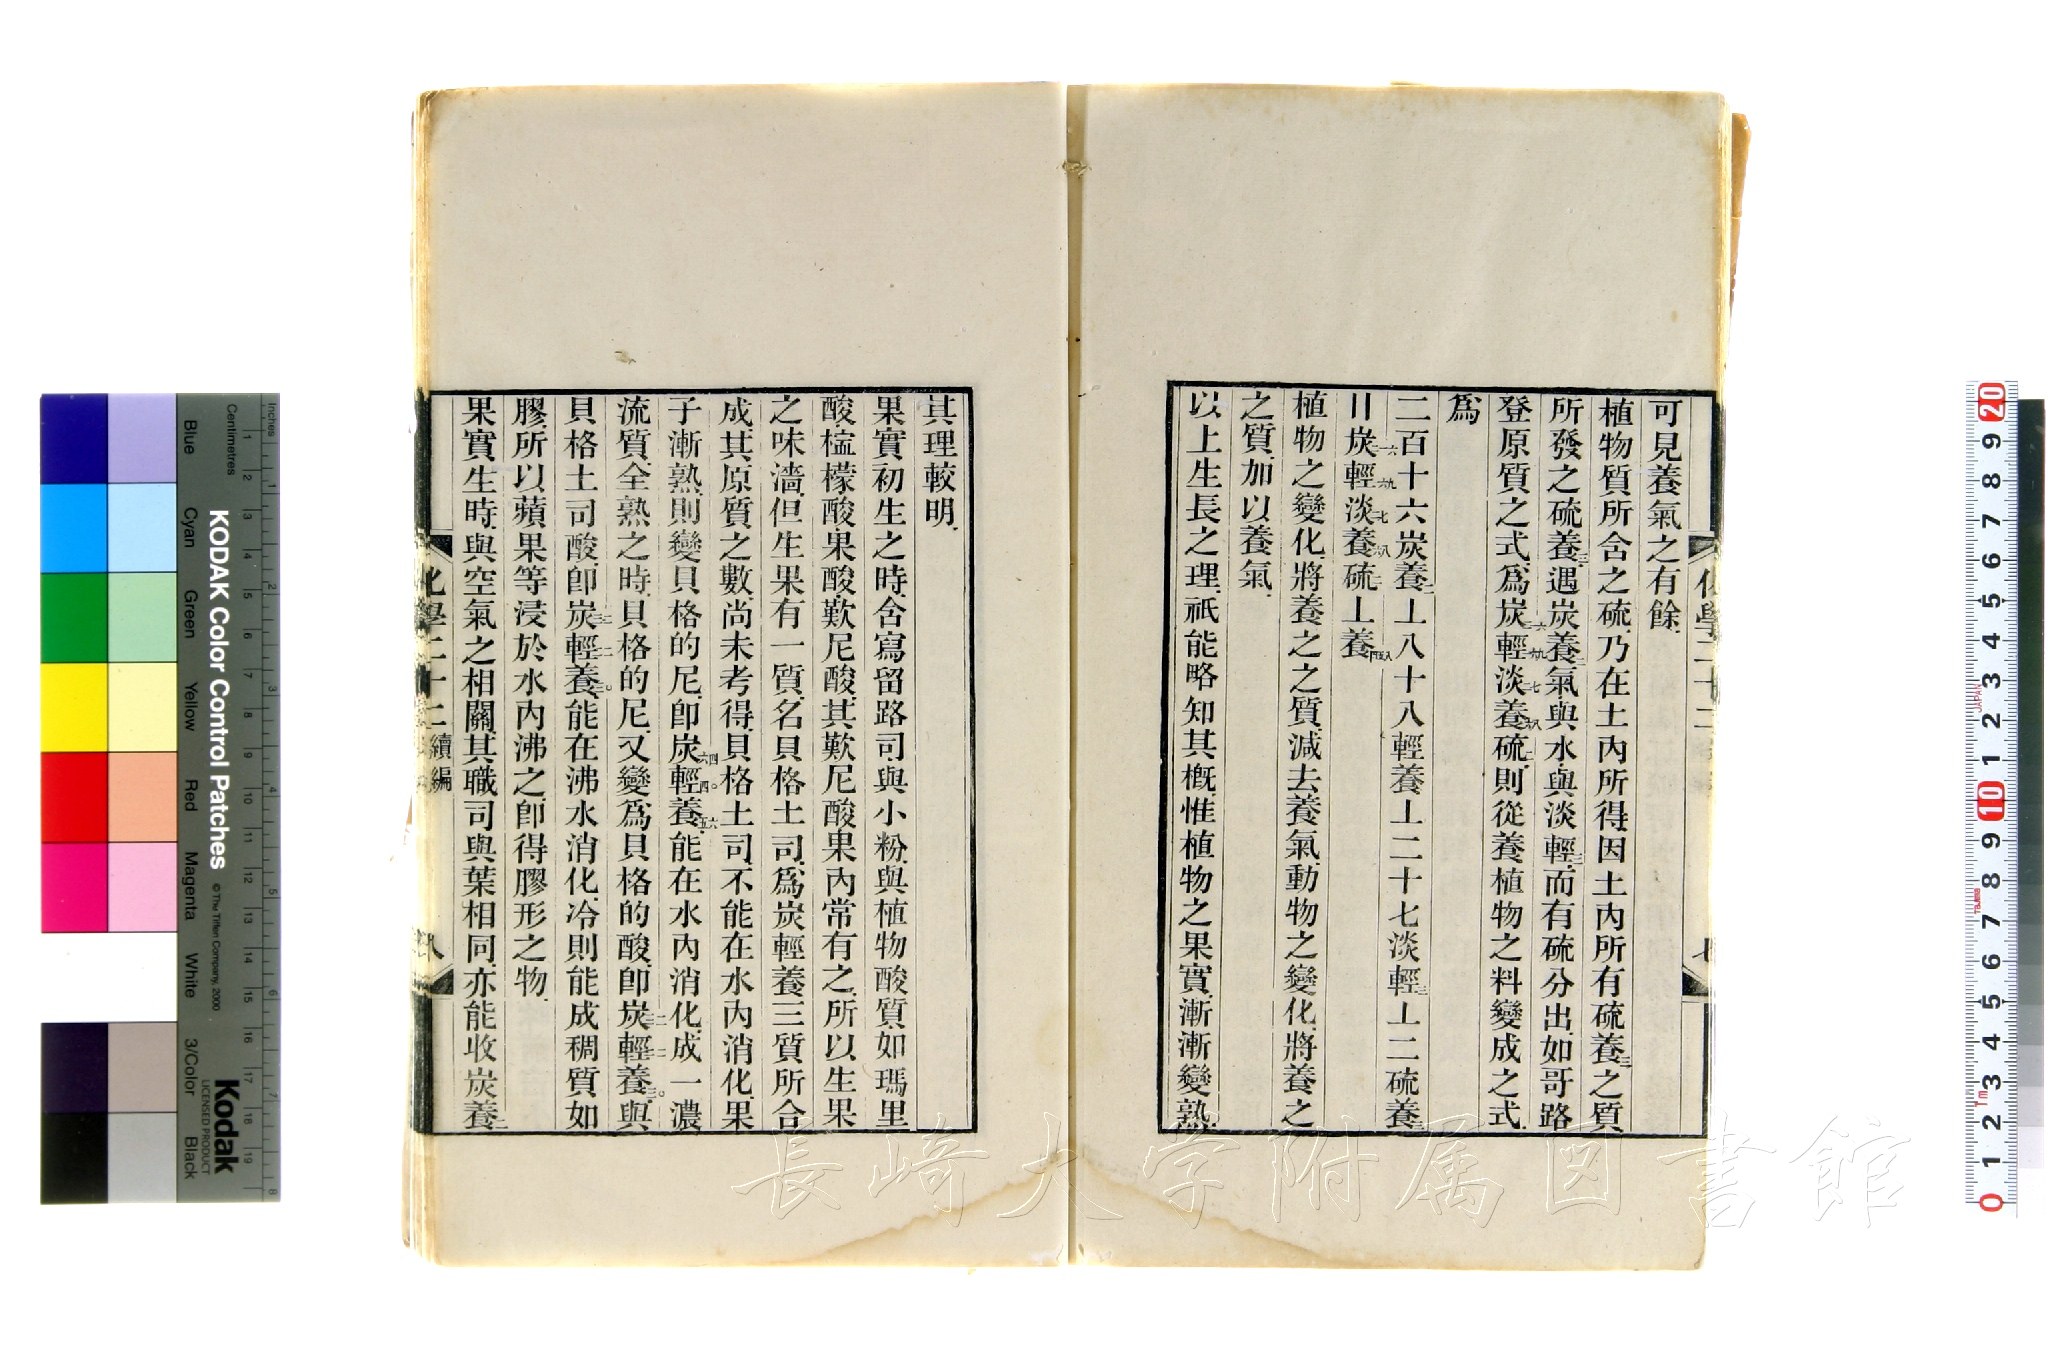 可見養氣之有餘
植物質所含之硫乃在土內所得因土內所有硫養三之質
所發之硫養三遇炭養二氣與水與淡輕三而有硫分出如哥路
登原質之式爲炭輕淡養硫二則從養植物之料變成之式
爲
二百十六炭養二⊥八十八輕養⊥二十七淡輕三⊥二硫養三
〢炭輕淡養硫⊥養
植物之變化將養之之質減去養氣動物之變化將養之
之質加以養氣
以上生長之理祇能略知其概惟植物之果實漸漸變熟
化學二十二
其理較明
果實初生之時含寫留路司與小粉與植物酸質如瑪里
酸橀檬酸果酸歎尼酸其歎尼酸果內常有之所以生果
之味濇但生果有一質名貝格土司爲炭輕養三質所合
成其原質之數尚未考得貝格土司不能在水內消化果
子漸熟則變貝格的尼卽炭六四輕四〇養五六能在水內消化成一濃
流質全熟之時貝格的尼又變爲貝格的酸卽炭輕養與
貝格土司酸卽炭輕養能在沸水消化冷則能成稠質如
膠所以蘋果等浸於水內沸之卽得膠形之物
果實生時與空氣之相關其職司與葉相同亦能收炭養二
化學二十二 續編
八
長崎大学附属図書館
KODAK Color Control Patches
© The Tiffen Company, 2000
Kodak
LICENSED PRODUCT
Inches
Centimetres
Blue
Cyan
Green
Yellow
Red
Magenta
White
3/Color
Black
1 2 3 4 5 6 7 8 9 10 11 12 13 14 15 16 17 18 19
20 9 8 7 6 5 4 3 2 1 10 9 8 7 6 5 4 3 2 1 0
JAPAN